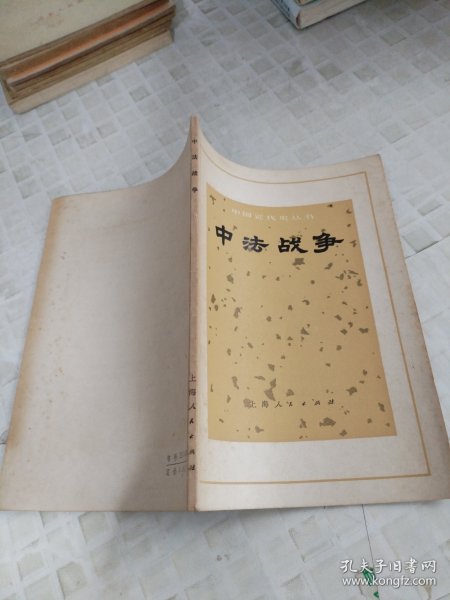 中国近代史丛书
中法战争
上海人民出版社
中法战争
上海人民出版社
书号
定价
孔夫子旧书网
www.kongfz.com